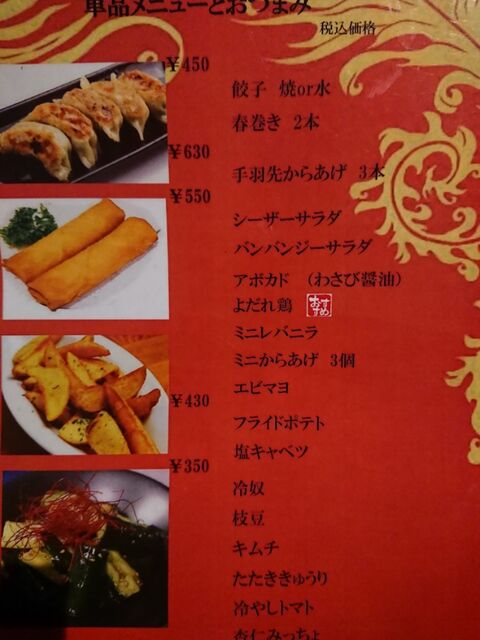 単品メニューとおつまみ
税込価格
¥450
餃子 焼or水
春巻き 2本
¥630
手羽先からあげ 3本
¥550
シーザーサラダ
バンバンジーサラダ
アボカド (わさび醤油)
よだれ鶏 おすすめ
ミニレバニラ
ミニからあげ 3個
エビマヨ
¥430
フライドポテト
塩キャベツ
¥350
冷奴
枝豆
キムチ
たたききゅうり
冷やしトマト
杏仁みっちょ